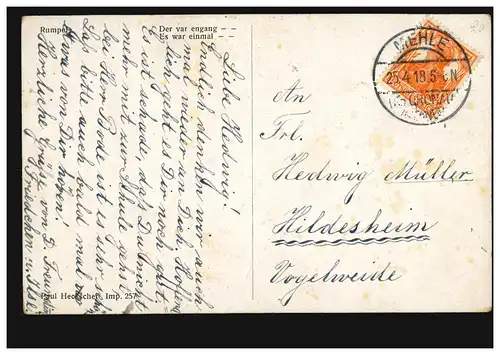 Rumpolt
Der var engang - -
Es war einmal - -
Liebe Hedwig!
Endlich denken wir auch
mal wieder an Dich. Hoffent-
lich geht es Dir noch gut.
Es ist schade, das Du nicht
mehr mit zur Schule gehst
bei Herr Bode ist es sehr
Laß bitte auch bald mal
etwas von Dir hören!
Herzliche Grüße von D. Freundin
Friedchen u. Ilse.
Paul Heckscher, Imp. 257
MEHLE
25.4.18.5-6N
An
Frl.
Hedwig Müller
Hildesheim
Vogelweide